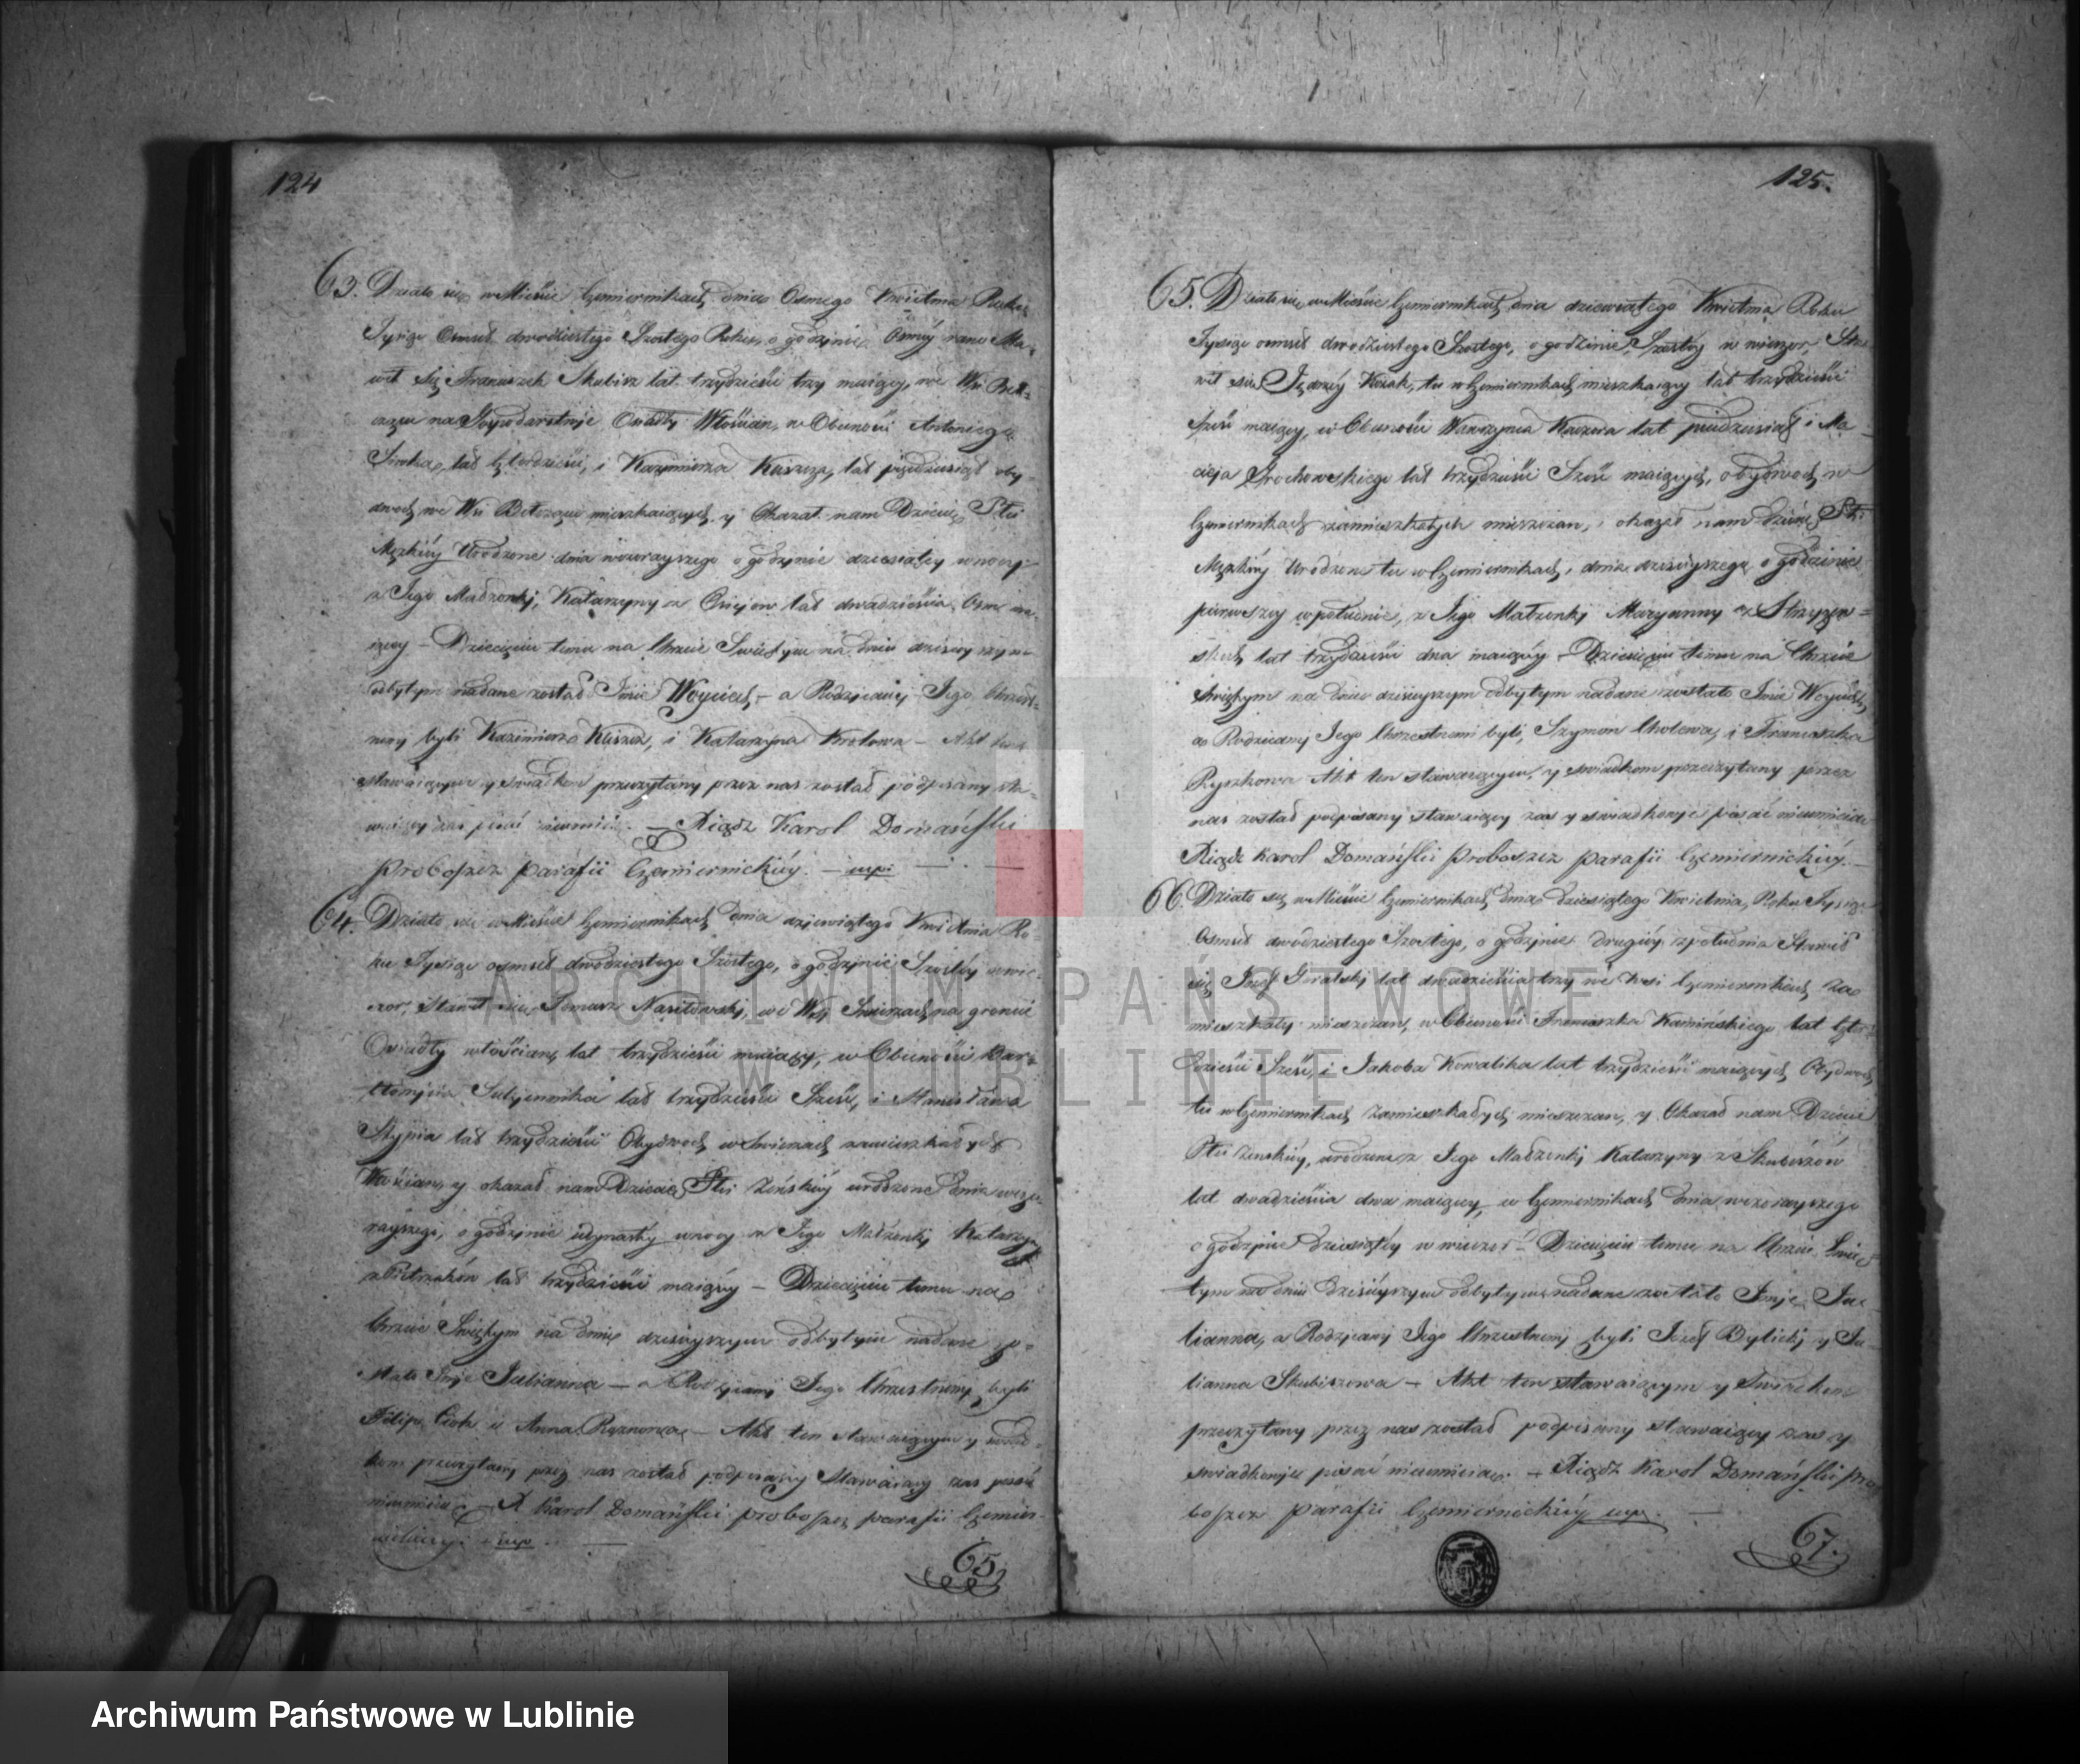 124
63. Działo się w Mieście Czemiernikach dnia Osmego Kwietnia Roku
Tysiąc Osmset dwudziestego Szostego Roku, o godzinie Osmey rano Sta-
wił się Franciszek Skubisz lat trzydzieści trzy maiący, we Wsi Bek-
czącu na Gospodarstwie Osiadły Włościan, w Obecności Antoniego
lat Czterdzieści, i Kazimierza Kuszcza, lat pięćdziesiąt oby
dwoch we Wsi mieszkaiących y Okazał nam Dziecię Płci
Męzkiey Urodzone dnia wczorayszego o godzinie dziesiątey w nocy
z Jego Małżonki, Katarzyny z lat dwadzieścia Osm ma-
iącey – Dziecięciu temu na Chrzcie Swiętym na dniu dzisieyszym
odbytym nadane został Imie Woyciech – a Rodzicami Jego Chrzest-
nemi byli Kazimierz Kuszcz, i Katarzyna Krolowa – Akt ten
stawaiącym y swiadkom przeczytany przez nas został podpisany sta-
waiący zas pisać nieumieią. – Xiądz Karol Domański
Proboszcz parafii Czemiernickiey. – mp.
64. Działo się w Mieście Czemiernikach dnia dziewiątego Kwietnia Ro-
ku Tysiąc osmset dwudziestego Szostego, o godzinie Szostey w wie-
czor, Stawił się Tomasz Nasiłowski, we Wsi Swierzach na gruncie
Osiadły włościan, lat trzydzieści maiący, w Obecności Bar-
tłomieia lat trzydzieści Sześć, i Stanisława
Stypia lat trzydzieści Obydwoch w Swierzach zamieszkałych
Włościan, y okazał nam Dziecię Płci Zeńskiey urodzone dnia wczo-
rayszego, o godzinie w nocy z Jego Małżonki Katarzyny
z Pietrzaków lat trzydzieści maiącey – Dziecięciu temu na
Chrzcie Swiętym na dniu dzisieyszym odbytym nadane zo-
stało Imie Julianna – a Rodzicami Jego Chrzestnemi byli
Filip Cioch i Anna – Akt ten stawaiącym y swiad-
kom przeczytany przez nas został podpisany Stawaiący zas pisać
nieumieią – X Karol Domański proboszcz parafii Czemier-
nickiey. mp.
65.
125.
65. Działo się w Mieście Czemiernikach dnia dziewiątego Kwietnia Roku
Tysiąc osmset dwudziestego Szostego, o godzinie Szostey w wieczor, Sta-
wił się Jędrzey Kozak, tu w Czemiernikach mieszkaiący lat trzydzieści
Sześć maiący, w Obecności Wawrzyńca lat pięćdziesiąt i Ma-
cieja Grochowskiego lat trzydzieści Sześć maiących, obydwoch w
Czemiernikach zamieszkałych mieszczan, i okazał nam dziecię Płci
Męzkiey Urodzone tu w Czemiernikach, dnia dzisieyszego o godzinie
pierwszey w południe, z Jego Małżonki Maryanny z Strzyżew-
skich lat trzydzieści dwa maiącey – Dziecięciu temu na Chrzcie
Swiętym na dniu dzisieyszym odbytym nadane zostało Imie Woyciech,
a Rodzicami Jego Chrzestnemi byli, Szymon Cholewa, i Franciszka
Ryszkowa Akt ten stawaiącym, y swiadkom przeczytany przez
nas został podpisany stawaiący zas y swiadkowie pisać nieumieią
Xiądz Karol Domański Proboszcz parafii Czemiernickiey. –
66. Działo się w Mieście Czemiernikach dnia dziesiątego Kwietnia, Roku Tysiąc
Osmset dwudziestego Szostego, o godzinie drugiey z południa Stawił
się Józef Giralski lat dwadzieścia trzy we wsi Czemiernikach za-
mieszkały mieszczan, w Obecności Franciszka Kamińskiego lat Czter-
dzieści Sześć, i Jakoba Kowalika lat trzydzieści maiących Obydwoch
tu w Czemiernikach zamieszkałych mieszczan, y Okazał nam Dziecie
Płci Zenskiey, urodzone z Jego Małżonki Katarzyny z Skubiszów
lat dwadzieścia dwa maiącey, w Czemiernikach dnia wczorayszego
o godzinie dziesiątey w wieczor – Dziecięciu temu na Chrzcie Swię-
tym na dniu dzisieyszym odbytym nadane zostało Imie Ju-
lianna, a Rodzicami Jego Chrzestnemi byli Józef Bylicki y Ju-
lianna Skubiszowa – Akt ten stawaiącym y Swiadkom
przeczytany przez nas został podpisany stawaiący zas y
swiadkowie pisać nieumieią. – Xiądz Karol Domański Pro-
boszcz parafii Czemiernickiey mp.
67.
ARCHIWUM PAŃSTWOWE
W LUBLINIE
Archiwum Państwowe w Lublinie